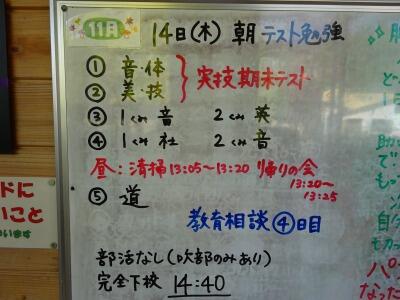 11月 14日(木) 朝 テスト勉強
① 音・体
② 美・技
実技期末テスト
③ 1くみ 音 2くみ 英
④ 1くみ 社 2くみ 音
昼：清掃13:05〜13:20 帰りの会
13:20〜
13:25
⑤ 道
教育相談④日目
部活なし(吹部のみあり)
完全下校 14:40
ドに
いこと
います